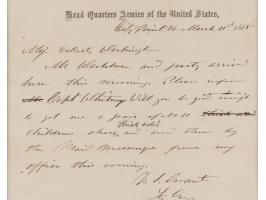 Head Quarters Armies of the United States,
City Point Va. March 11th 1865
Maj. Eckert, Washington
Mr. Washburn and party arrived
here this morning. Please inform
Capt Whitney Will you be good enough
to get me a pair of No 11
thick soled
childrens shoes, and send them by
the Mail Messenger from my
office this evening.
U. S. Grant
Lt. Gn.